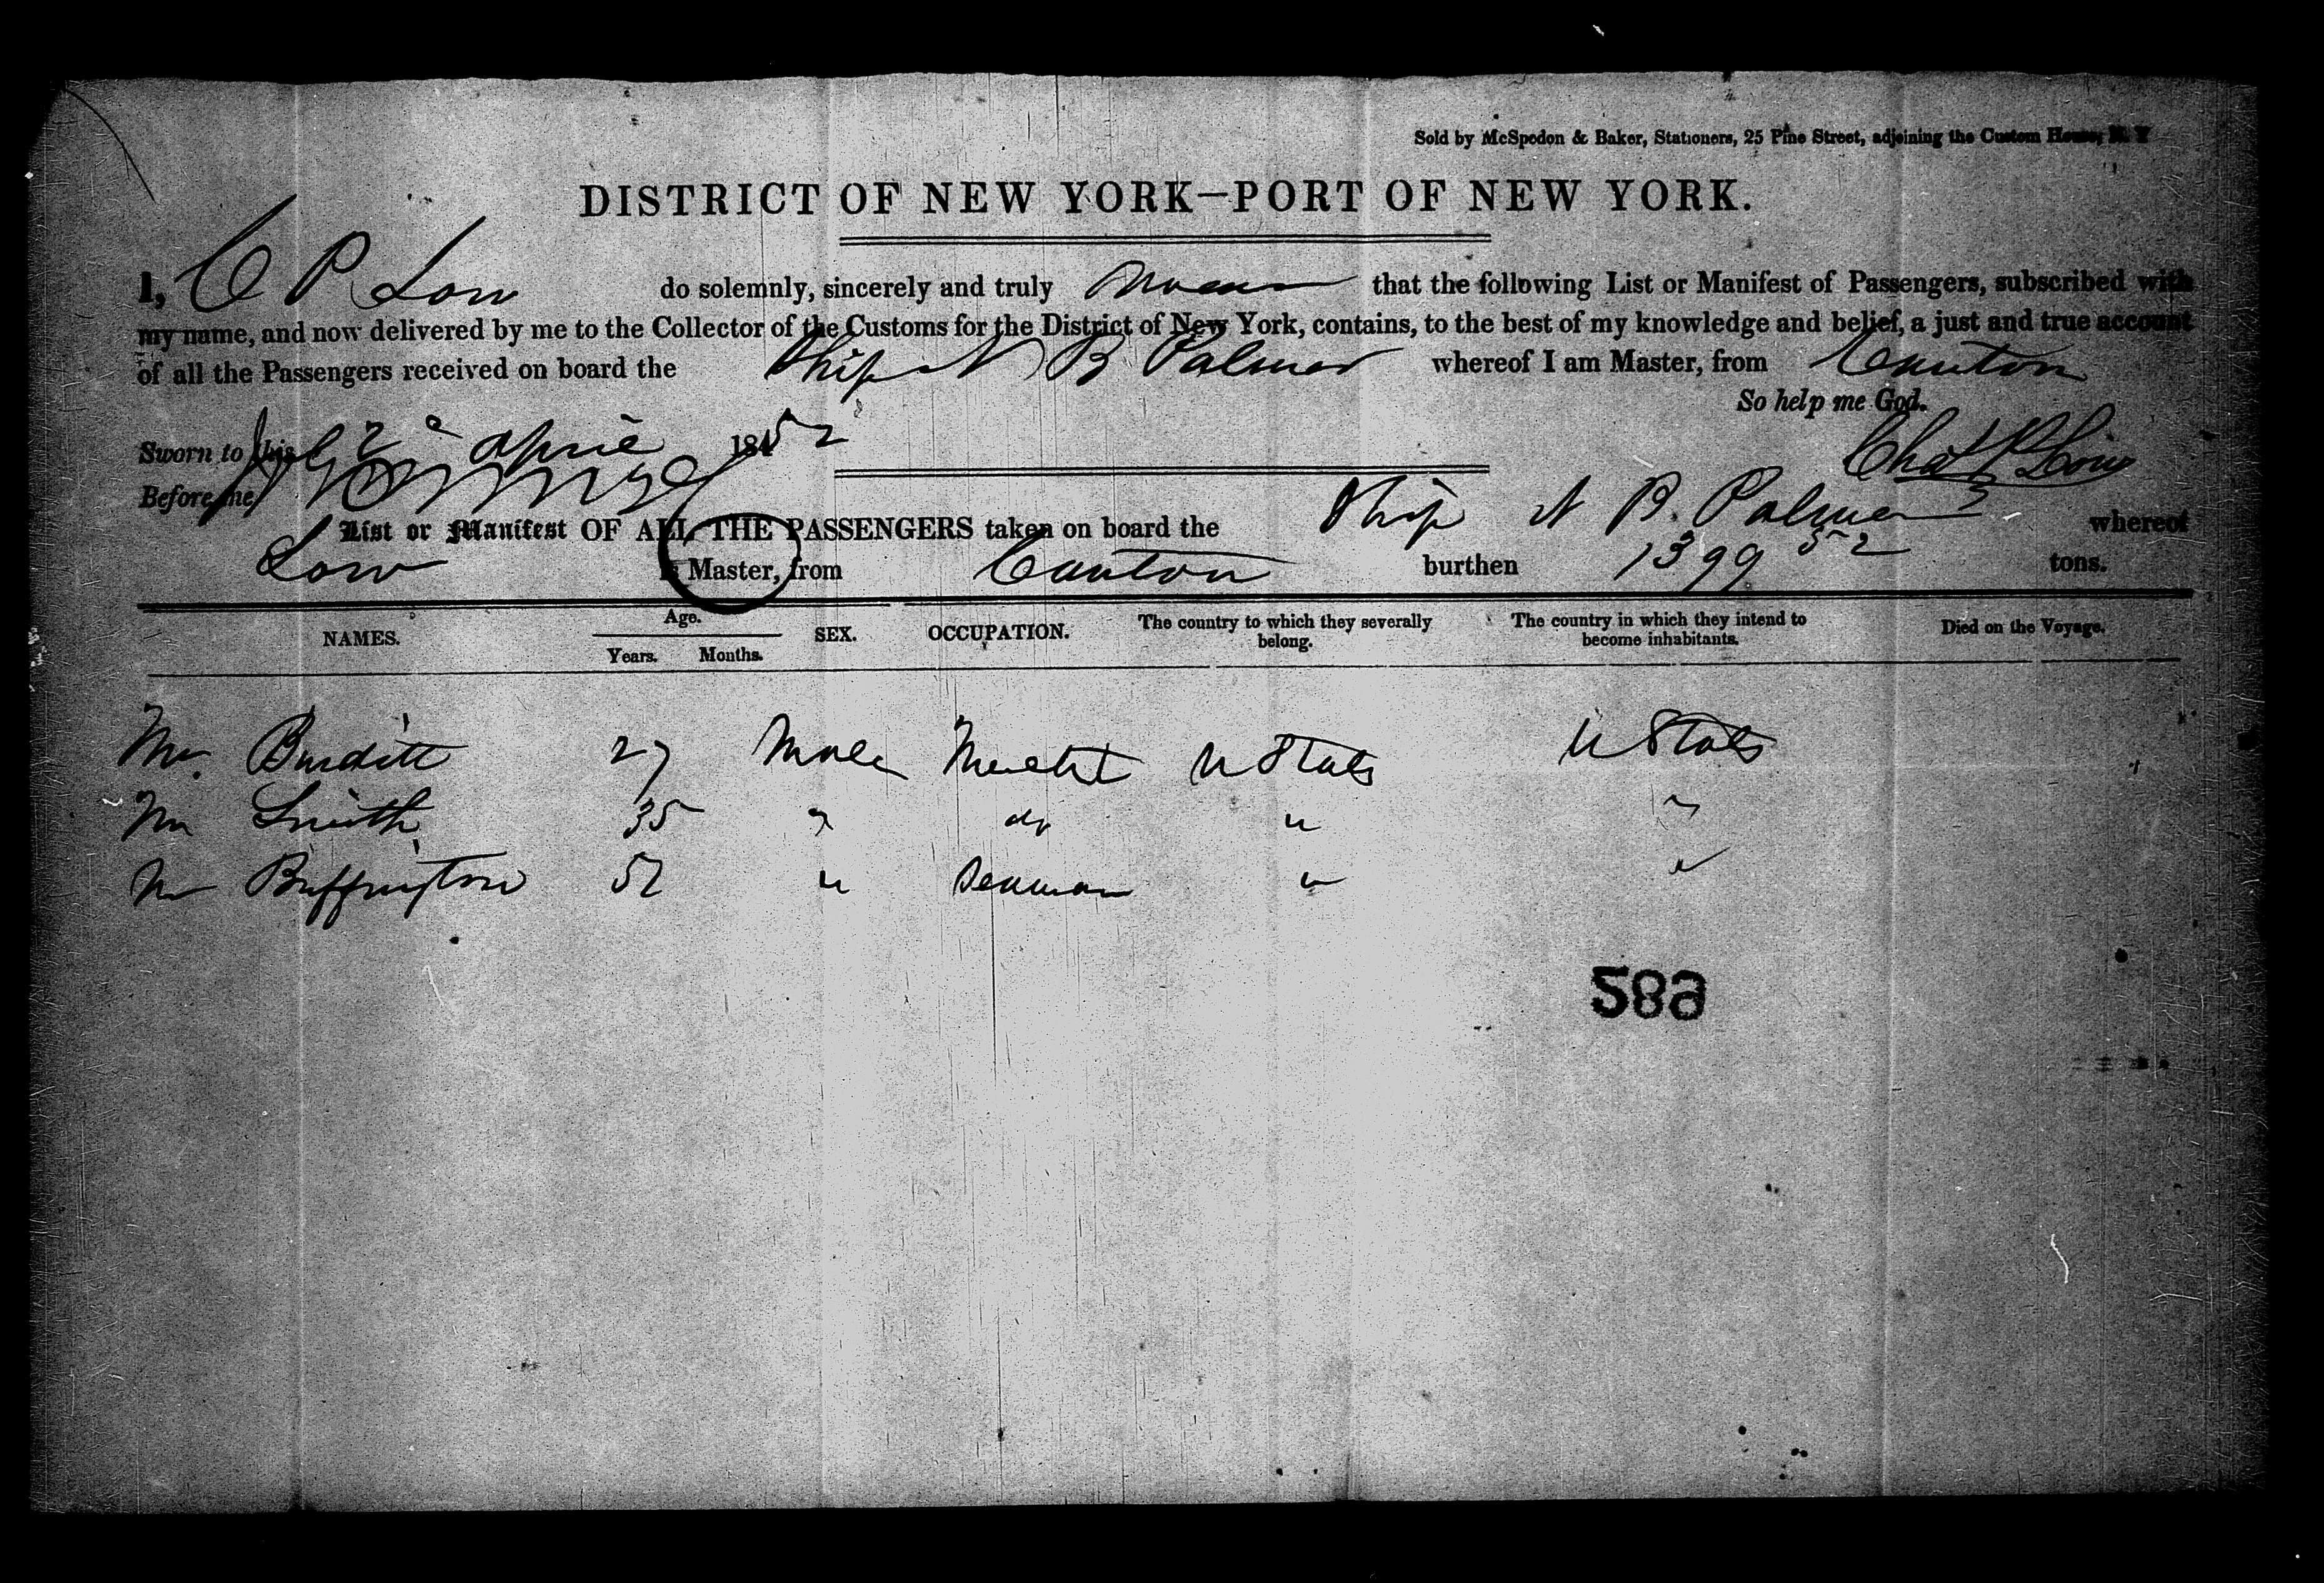 Sold by McSpedon & Baker, Stationers, 25 Pine Street, adjoining the Custom House, N. Y
DISTRICT OF NEW YORK—PORT OF NEW YORK.
I, C P Low do solemnly, sincerely and truly swear that the following List or Manifest of Passengers, subscribed with
my name, and now delivered by me to the Collector of the Customs for the District of New York, contains, to the best of my knowledge and belief, a just and true account
of all the Passengers received on board the Ship N B Palmer whereof I am Master, from Canton
So help me God.
Sworn to this April 1852
Chas P Low
Before me
List or Manifest OF ALL THE PASSENGERS taken on board the Ship N B. Palmer whereof
Low is Master, from Canton burthen 1399 52 tons.
NAMES. Age. Years. Months. SEX. OCCUPATION. The country to which they severally belong. The country in which they intend to become inhabitants. Died on the Voyage.
Mr. Burditt 27 Male Mercht U Stats U Stats
Mr Smith 35 " do " "
Mr Buffington 52 " Seaman " "
589